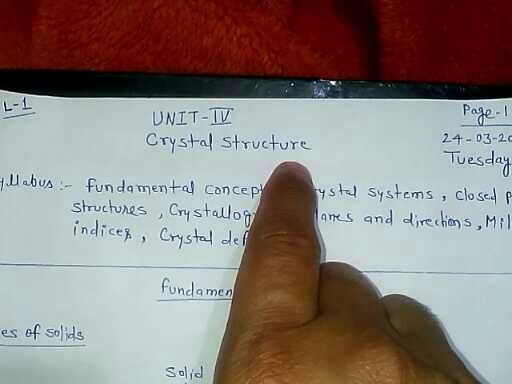 L-1
Page-1
UNIT-IV
24-03-20
Crystal Structure
Tuesday
yllabus :- fundamental concept crystal systems, closed P
structures, Crystallog planes and directions, Mil
indices, Crystal def
fundamen
es of solids
Solid